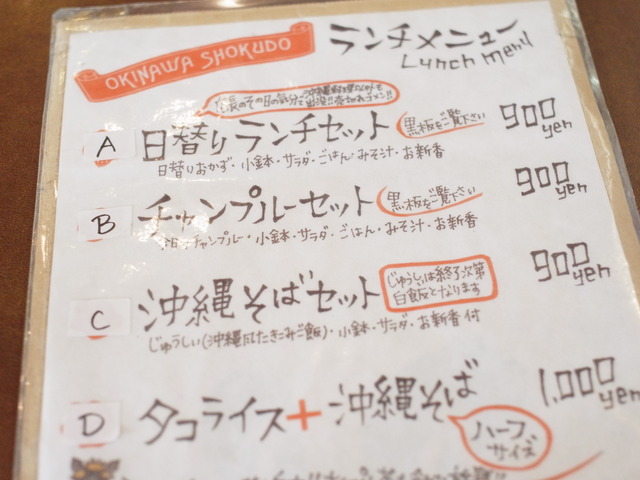 OKINAWA SHOKUDO
ランチメニュー
Lunch menu
店長のその日の気分で沖縄料理以外も
出没!!売切れゴメン!!
A 日替りランチセット 黒板をご覧下さい 900 yen
日替りおかず・小鉢・サラダ・ごはん・みそ汁・お新香
B チャンプルーセット 黒板をご覧下さい 900 yen
チャンプルー・小鉢・サラダ・ごはん・みそ汁・お新香
C 沖縄そばセット 900 yen
じゅうしぃは終了次第
白飯となります
じゅうしぃ(沖縄風たきこみご飯)・小鉢・サラダ・お新香付
D タコライス+沖縄そば 1,000 yen
ハーフ
サイズ